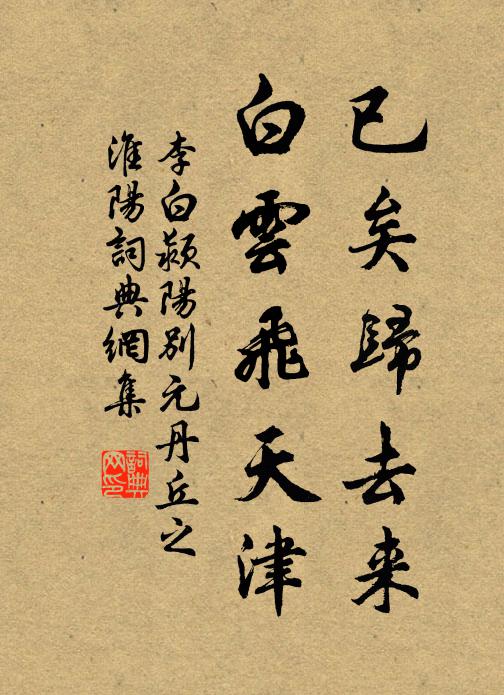 已矣歸去来
白雲飛天津
李白颍陽別元丹丘之
淮陽詞典網集
詞典网印